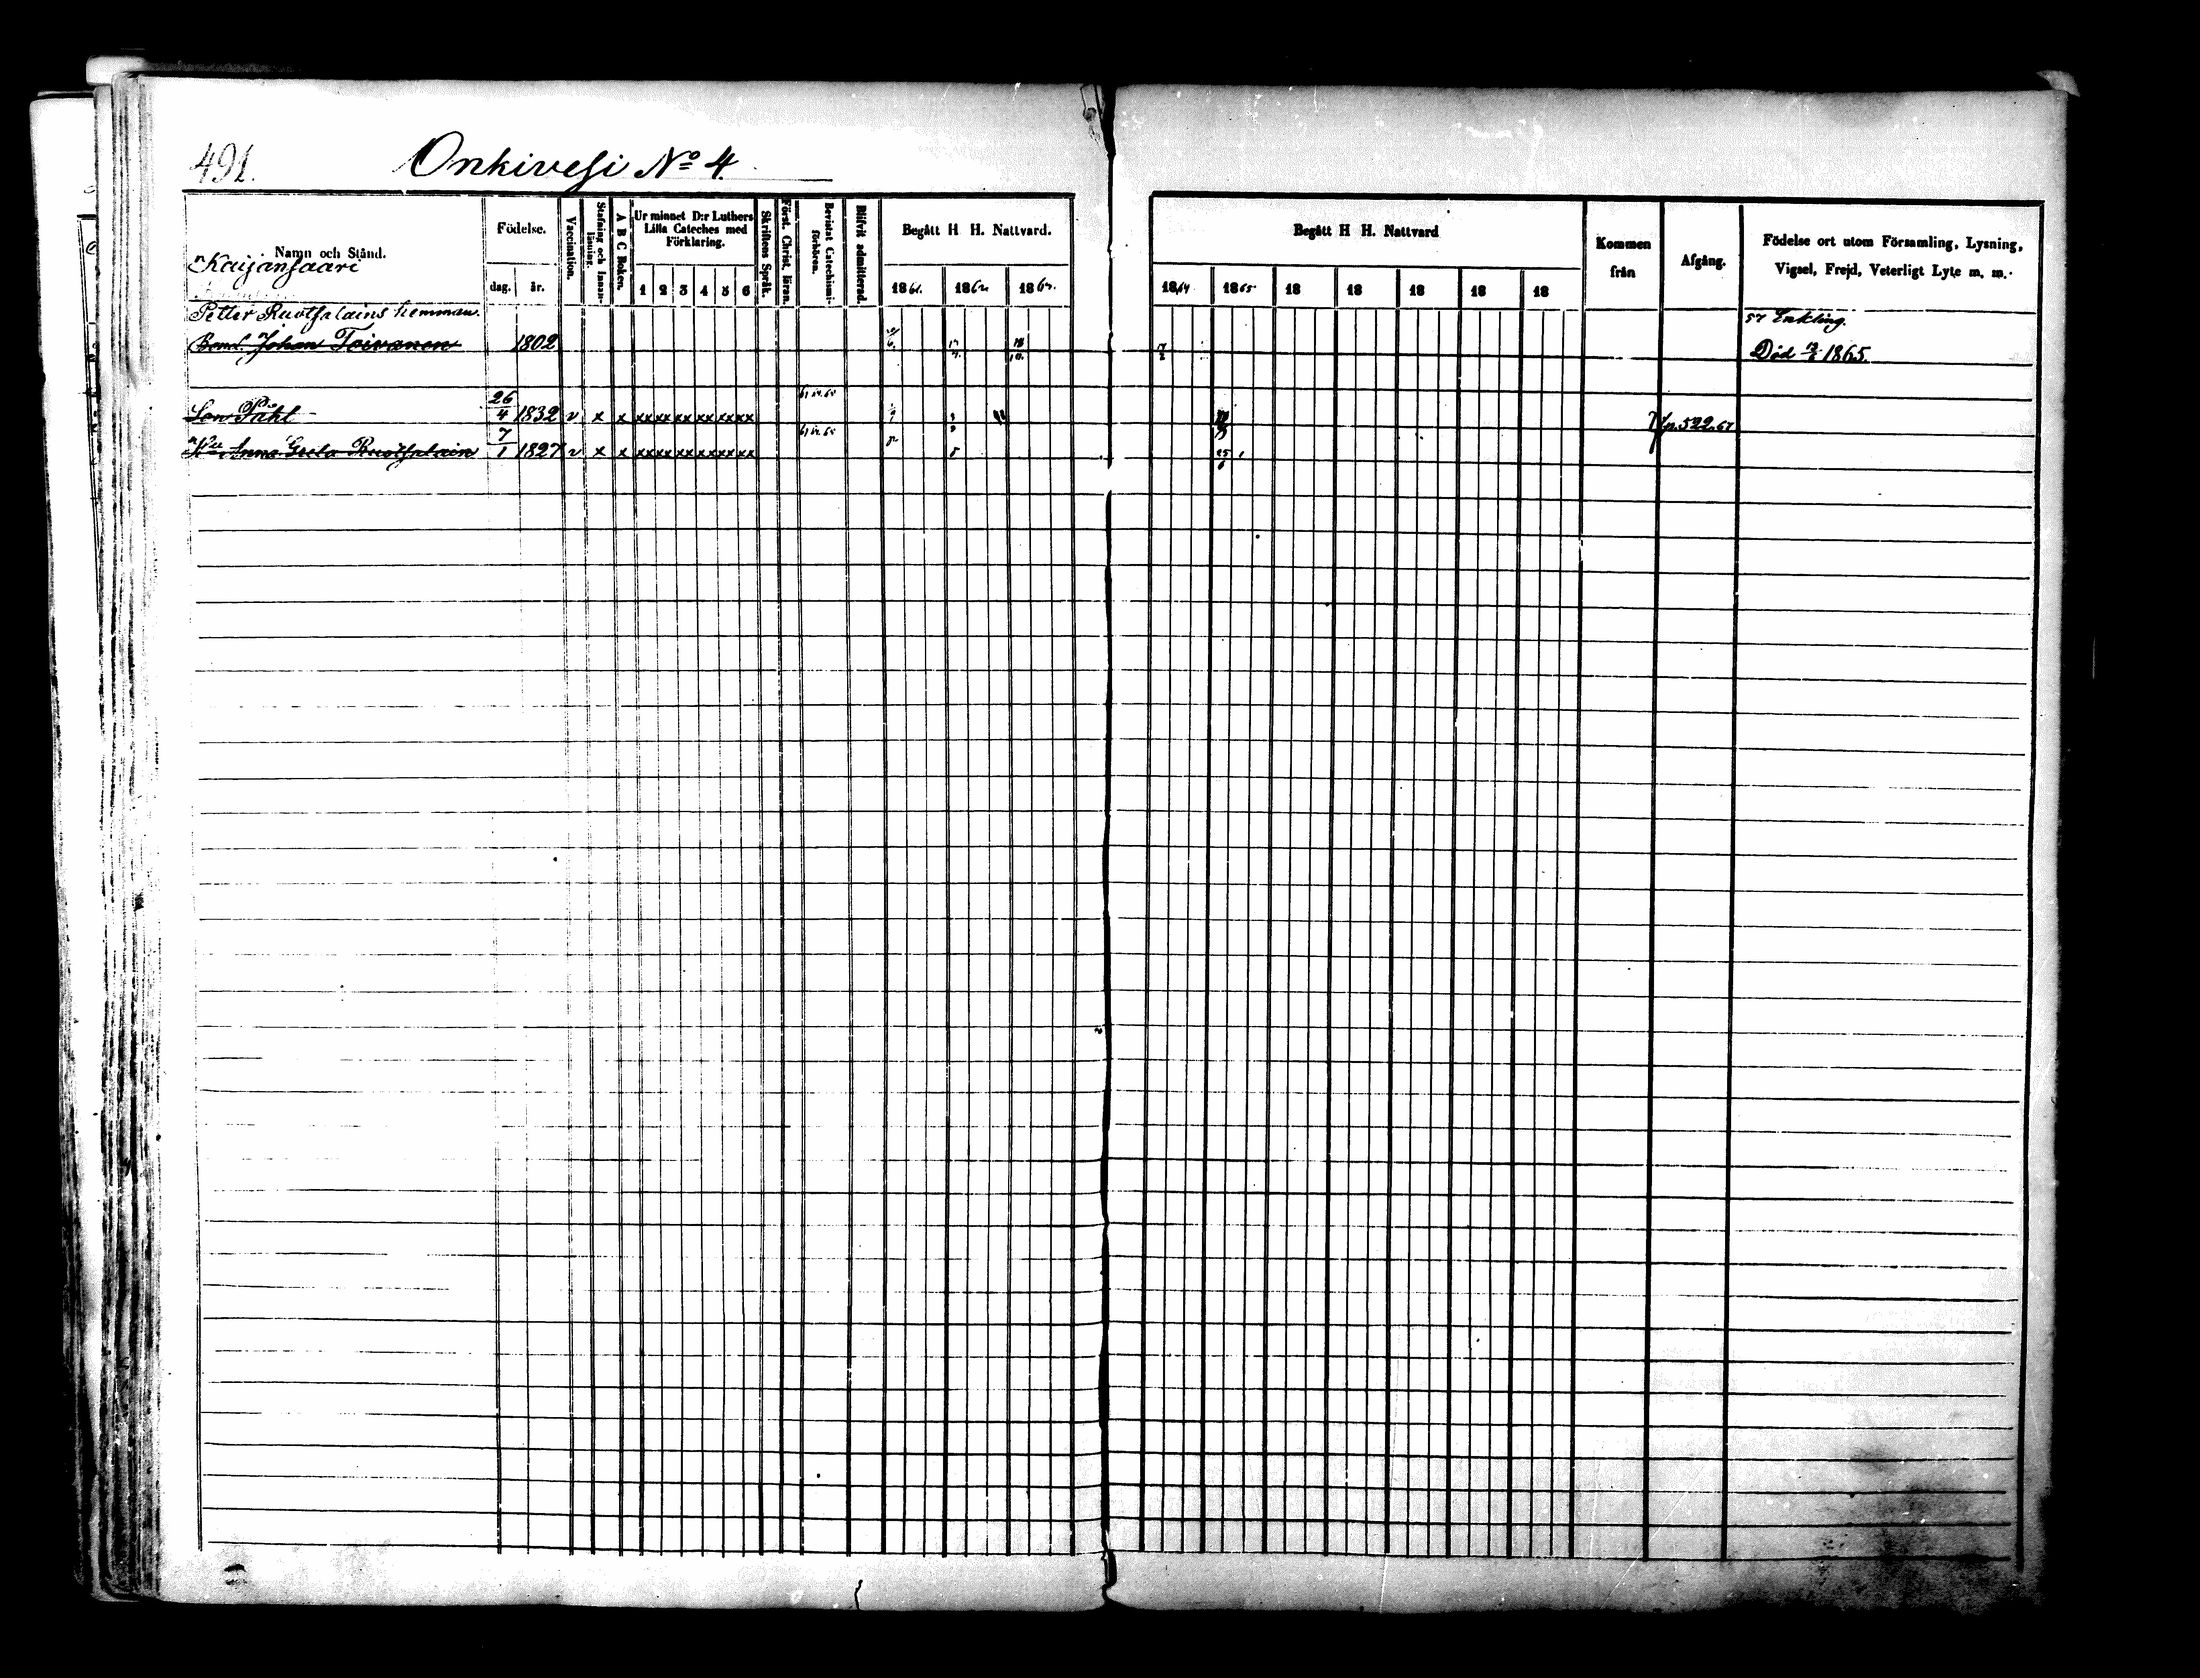 491.
Onkivesi No 4.
Namn och Stånd.
Födelse.
dag. år.
Vaccination.
Stafning och Innan-
läsning.
A B C Boken.
Ur minnet D:r Luthers
Lilla Cateches med
Förklaring.
1 2 3 4 5 6
Skriftens Språk.
Först. Christ. läran.
Bevistat Catechismi-
förhören.
Blifvit admitterad.
Begått H H. Nattvard.
1861. 1862. 1863.
Begått H H. Nattvard
1864 1865 18 18 18 18 18
Kommen
från
Afgång.
Födelse ort utom Församling, Lysning,
Vigsel, Frejd, Veterligt Lyte m. m.
Kaijansaari
Petter Ruotsalains hemman.
57 Enkling.
Bond. Johan Toivanen 1802
Död 1865.
Son Påhl 26/4 1832 v x x xx xx xx xx xx xx
p. 522. 67
Hu Anna Greta Ruotsalain 7/1 1827 v x x xx xx xx xx xx xx 25/6